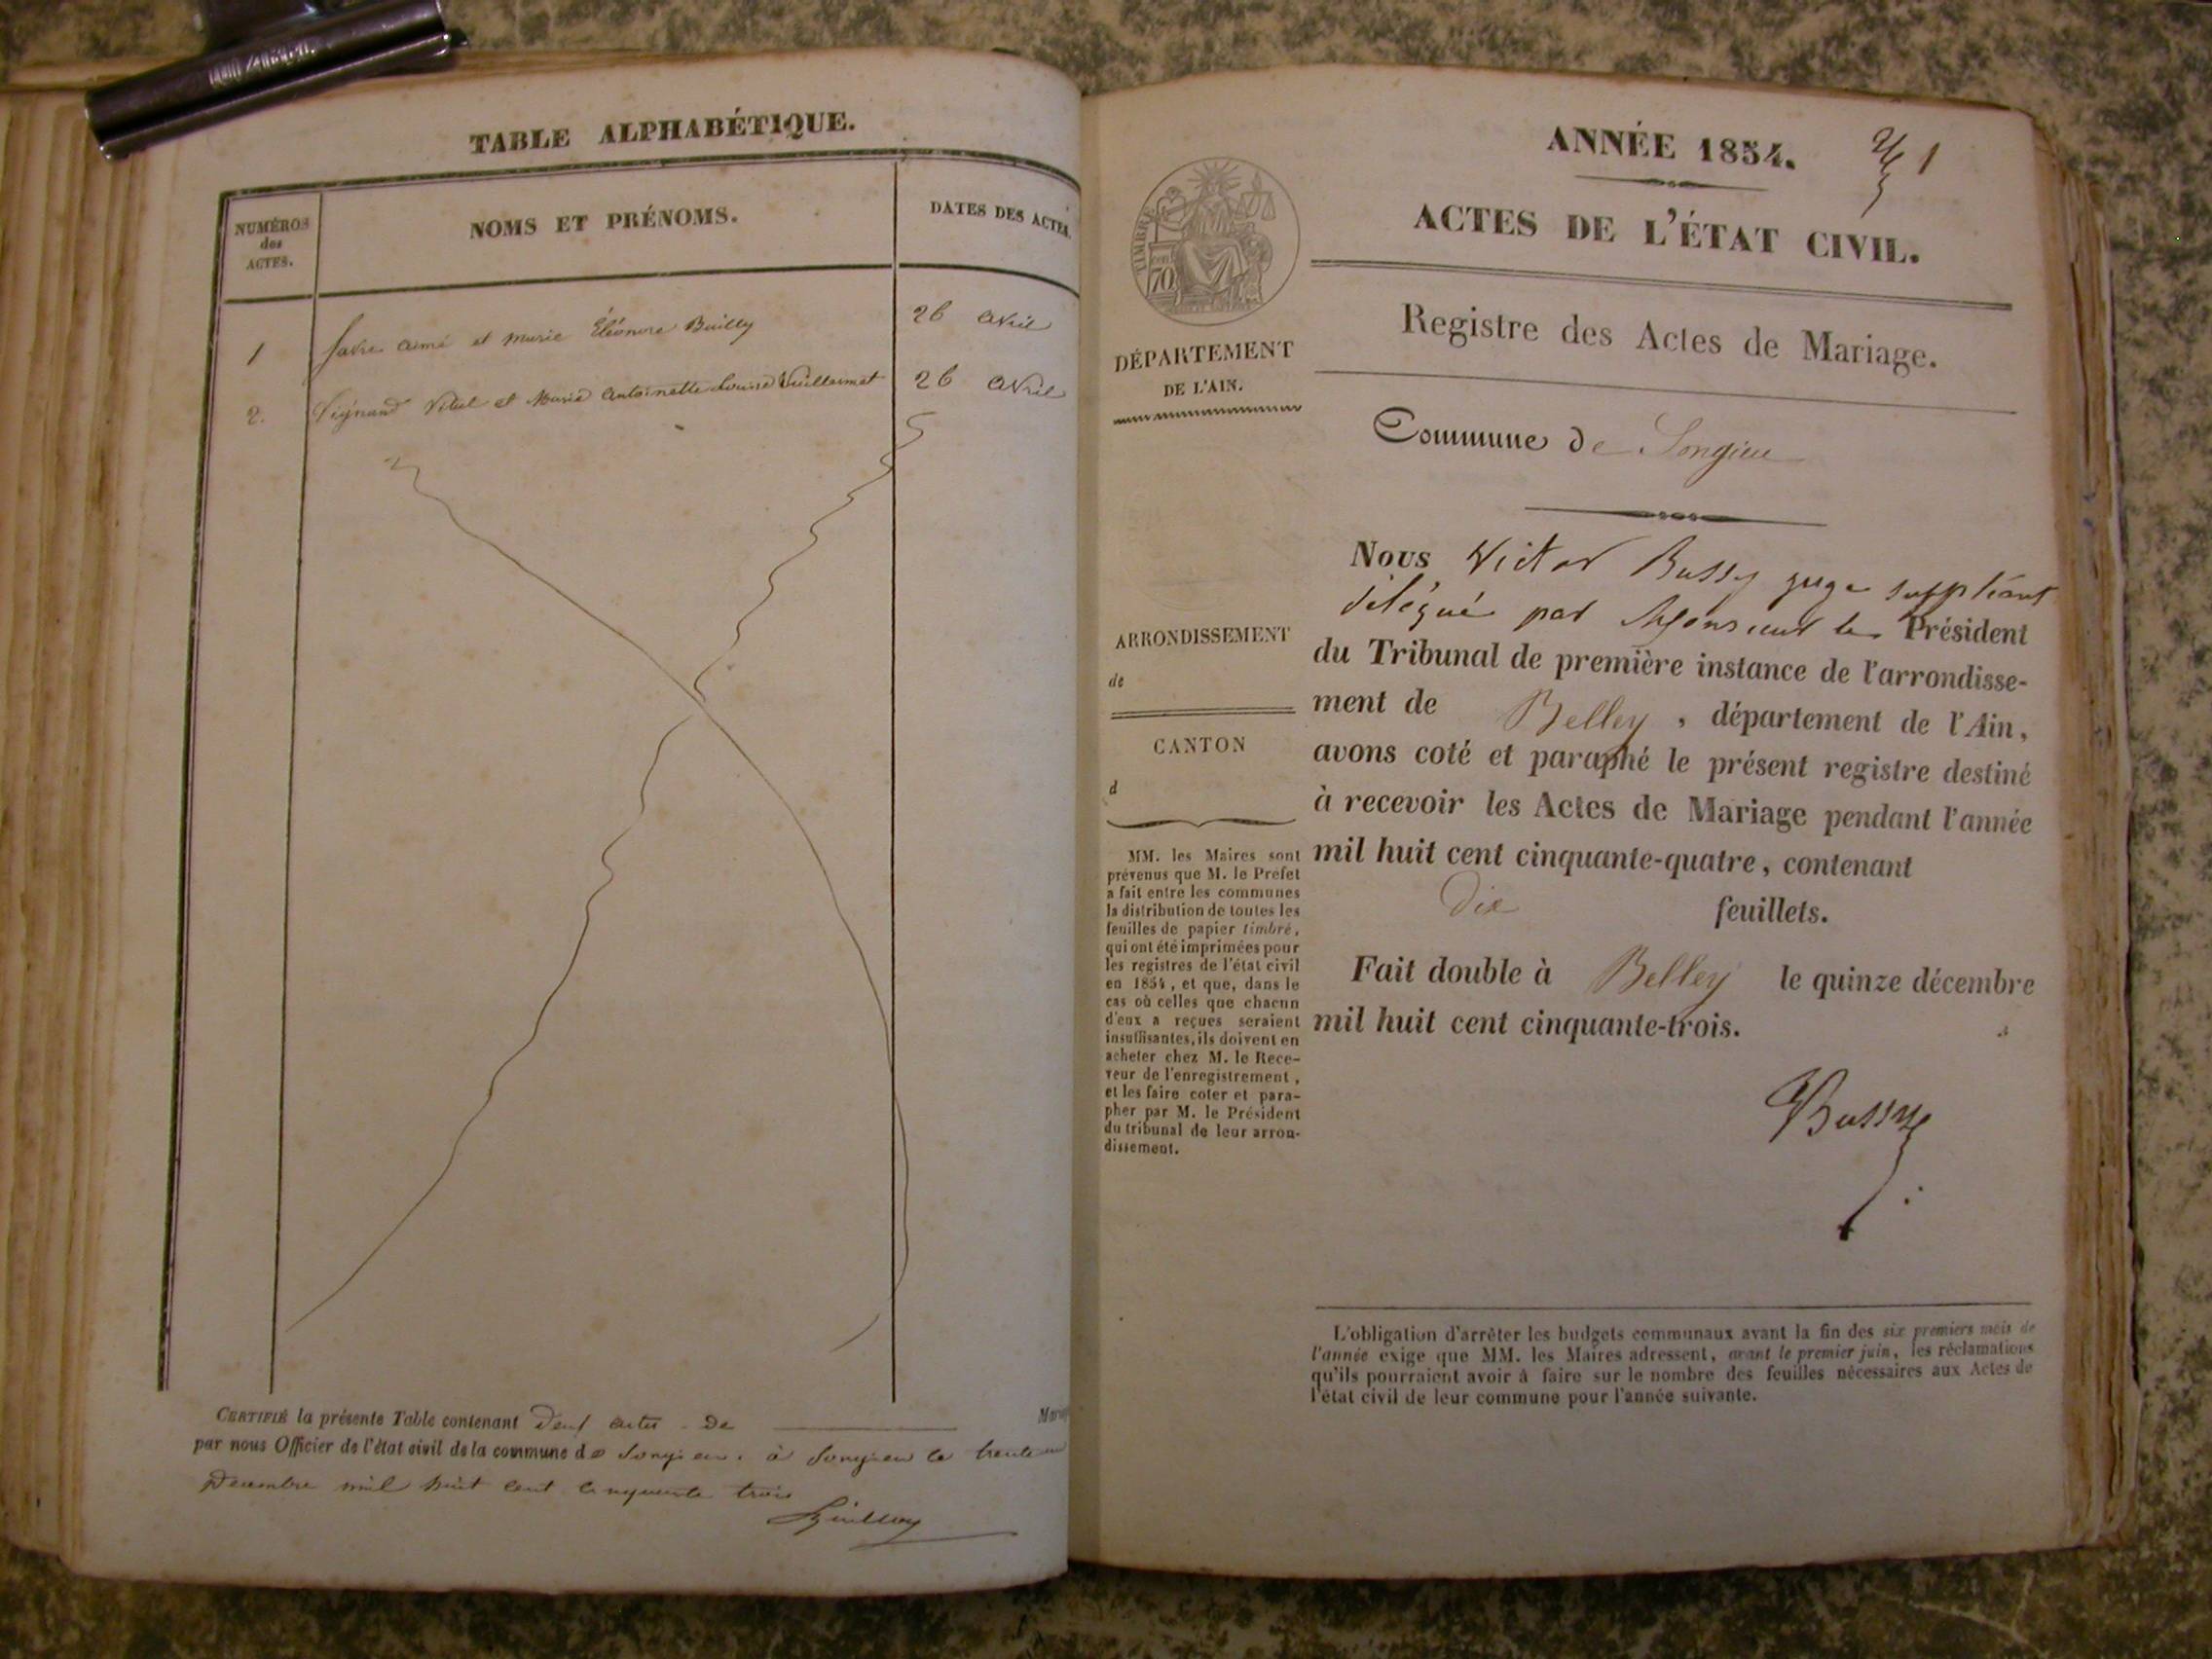 TABLE ALPHABÉTIQUE.
NUMÉROS
des
ACTES.
NOMS ET PRÉNOMS.
DATES DES ACTES.
1 favre aimé et marie Éléonore Bailly 26 avril
2. Vital et Marie Antoinette Louise Vuillermet 26 avril
CERTIFIÉ la présente Table contenant deux actes de
par nous Officier de l'état civil de la commune de Songieu, à Songieu le trente un
Decembre mil huit cent cinquante trois
ANNÉE 1854.
1
ACTES DE L'ÉTAT CIVIL.
Registre des Actes de Mariage.
Commune de Songieu
TIMBRE
70
DÉPARTEMENT
DE L'AIN.
ARRONDISSEMENT
de
CANTON
d
MM. les Maires sont
prévenus que M. le Préfet
a fait entre les communes
la distribution de toutes les
feuilles de papier timbré,
qui ont été imprimées pour
les registres de l'état civil
en 1854, et que, dans le
cas où celles que chacun
d'eux a reçues seraient
insuffisantes, ils doivent en
acheter chez M. le Rece-
veur de l'enregistrement,
et les faire coter et para-
pher par M. le Président
du tribunal de leur arron-
dissement.
Nous Victor Bussy juge suppléant
délégué par Monsieur le Président
du Tribunal de première instance de l'arrondisse-
ment de Belley, département de l'Ain,
avons coté et paraphé le présent registre destiné
à recevoir les Actes de Mariage pendant l'année
mil huit cent cinquante-quatre, contenant
dix feuillets.
Fait double à Belley le quinze décembre
mil huit cent cinquante-trois.
Bussy
L'obligation d'arrêter les budgets communaux avant la fin des six premiers mois de
l'année exige que MM. les Maires adressent, avant le premier juin, les réclamations
qu'ils pourraient avoir à faire sur le nombre des feuilles nécessaires aux Actes de
l'état civil de leur commune pour l'année suivante.